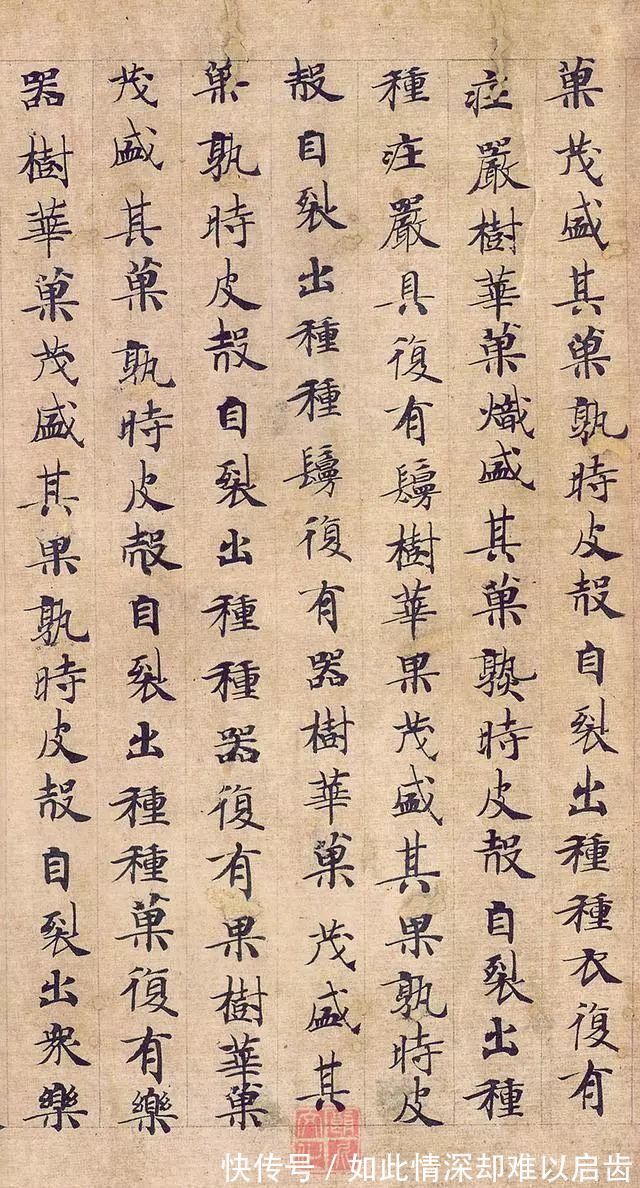 菓茂盛其菓孰時皮殻自裂出種種衣復有
疰嚴樹華菓熾盛其菓熟時皮殻自裂出種
種疰嚴具復有鬘樹華果茂盛其果孰時皮
殻自裂出種種鬘復有器樹華菓茂盛其
菓孰時皮殻自裂出種種器復有果樹華菓
茂盛其菓孰時皮殻自裂出種種菓復有樂
器樹華菓茂盛其果孰時皮殻自裂出衆樂
快传号/如此情深却难以启齿